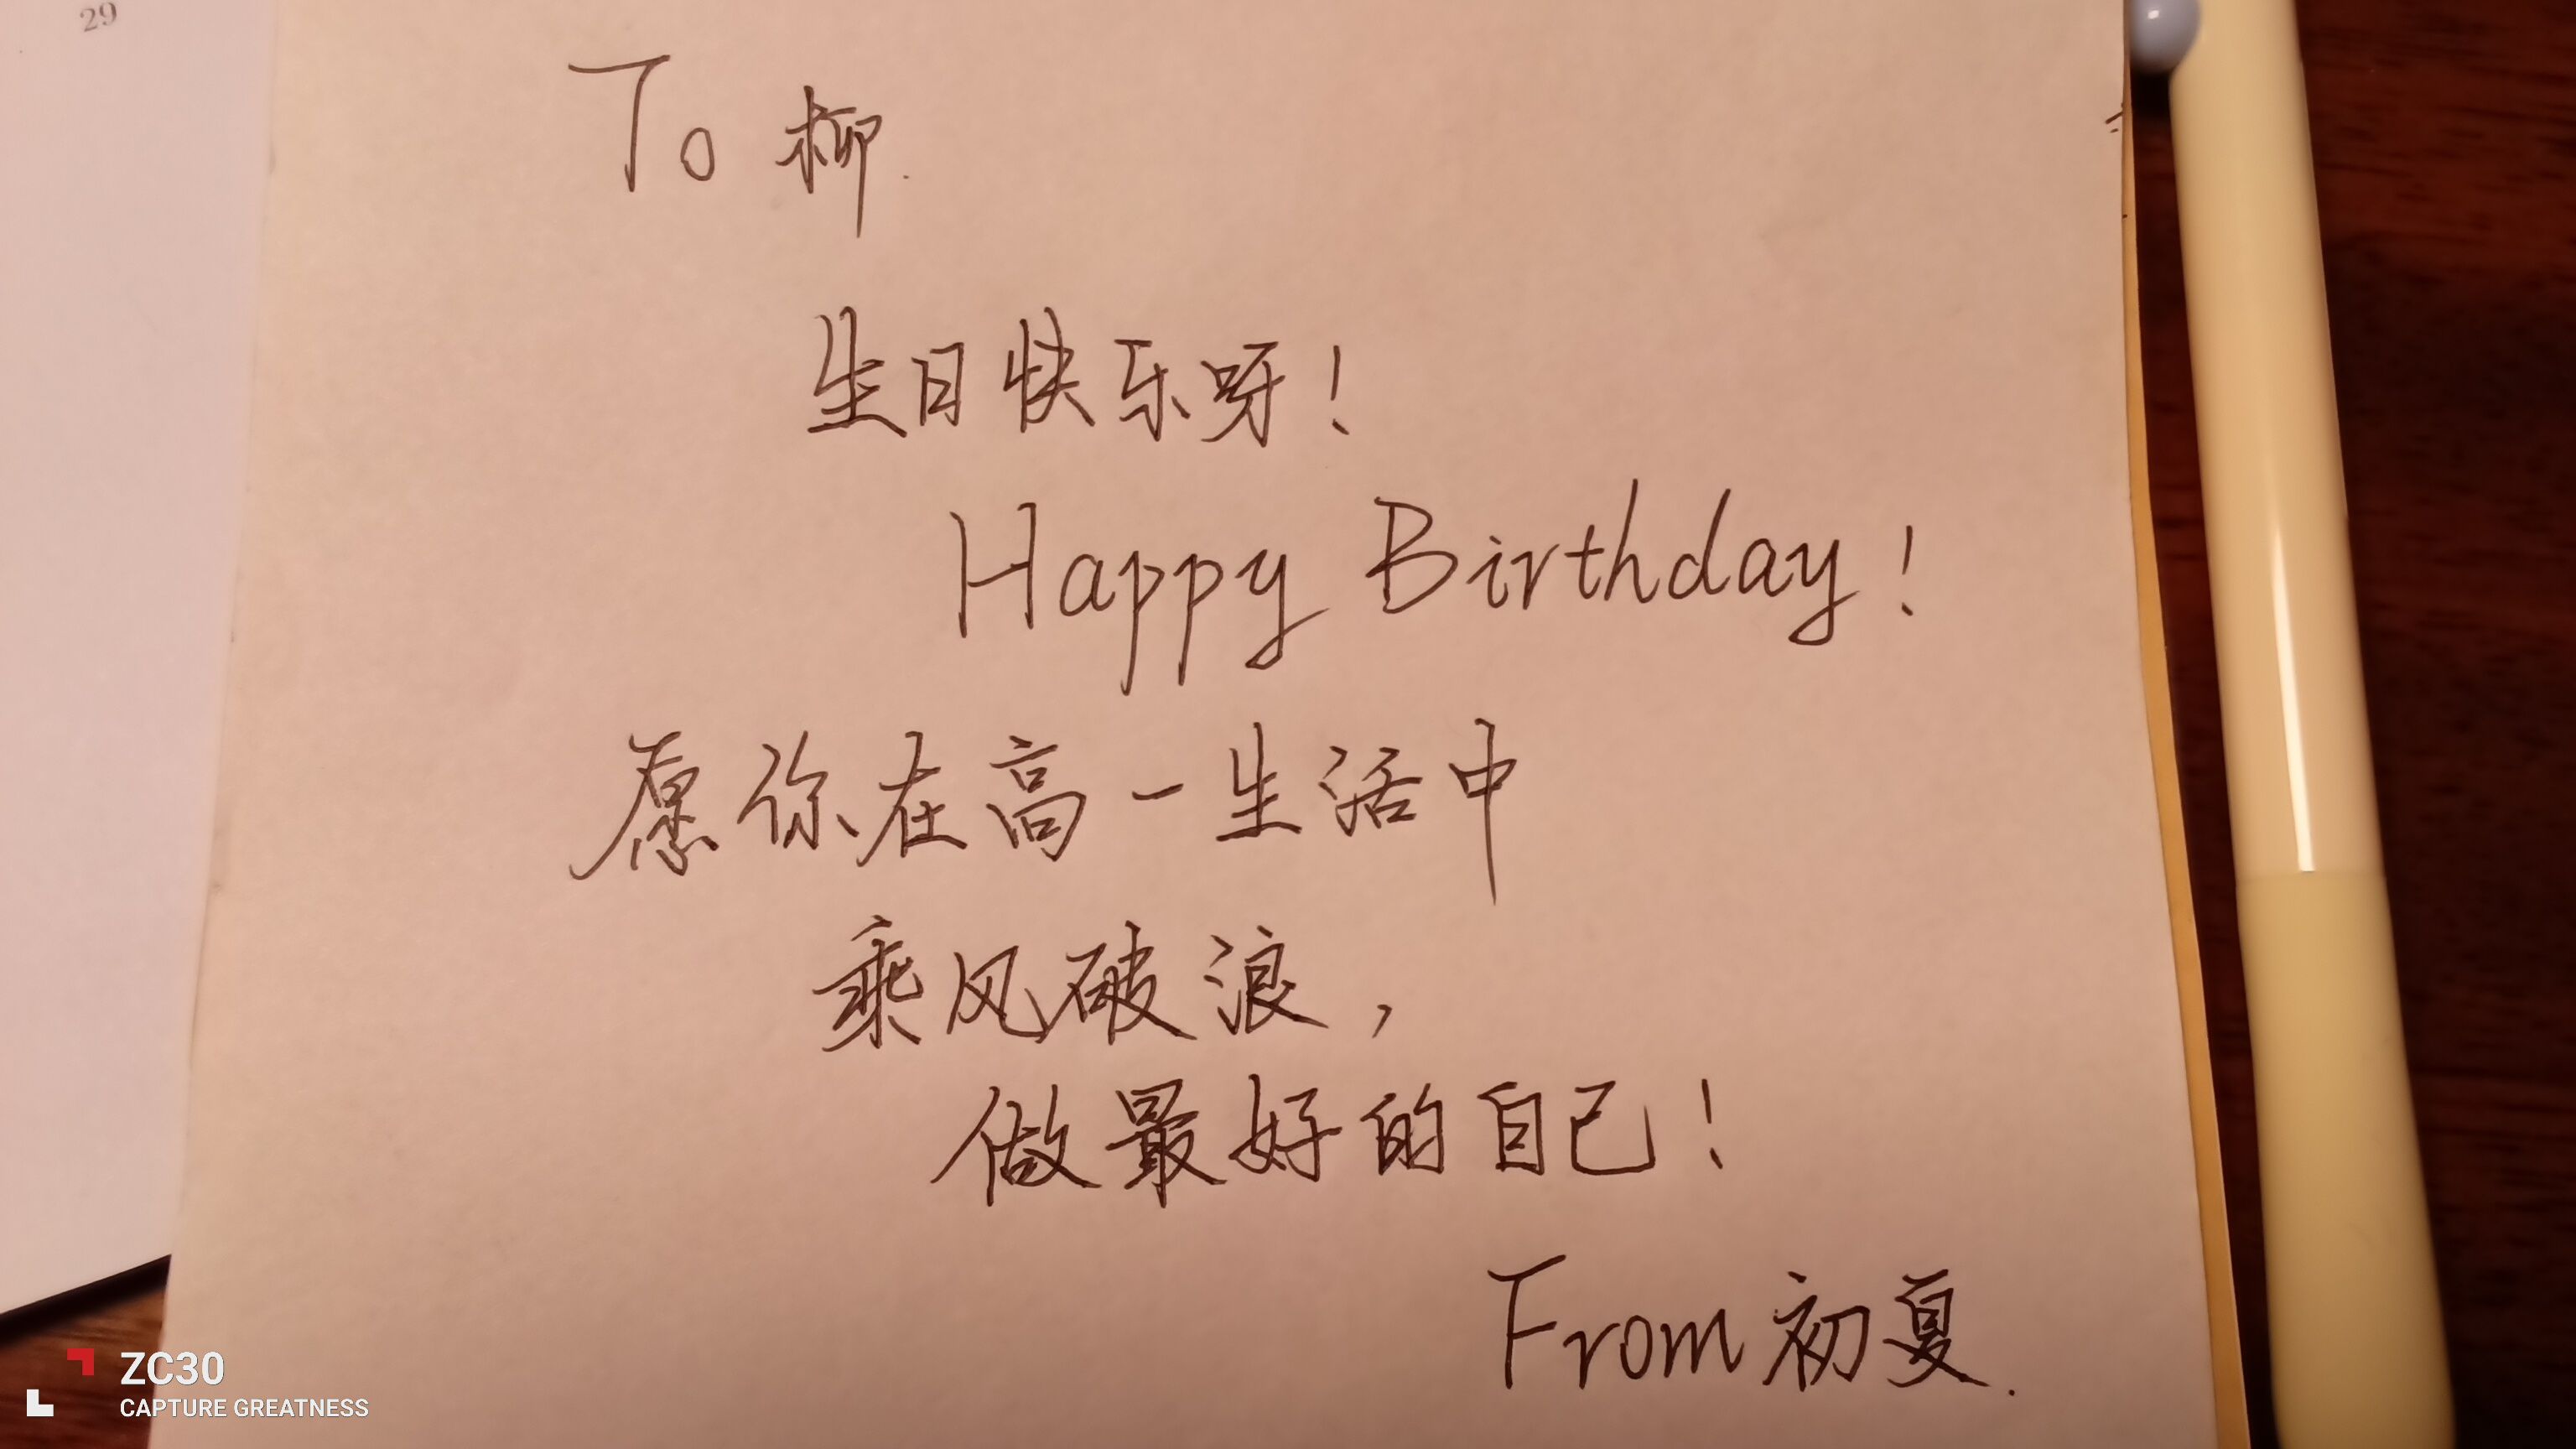 29
To 柳.
生日快乐呀！
Happy Birthday!
愿你在高一生活中
乘风破浪，
做最好的自己！
From 初夏.
ZC30
CAPTURE GREATNESS